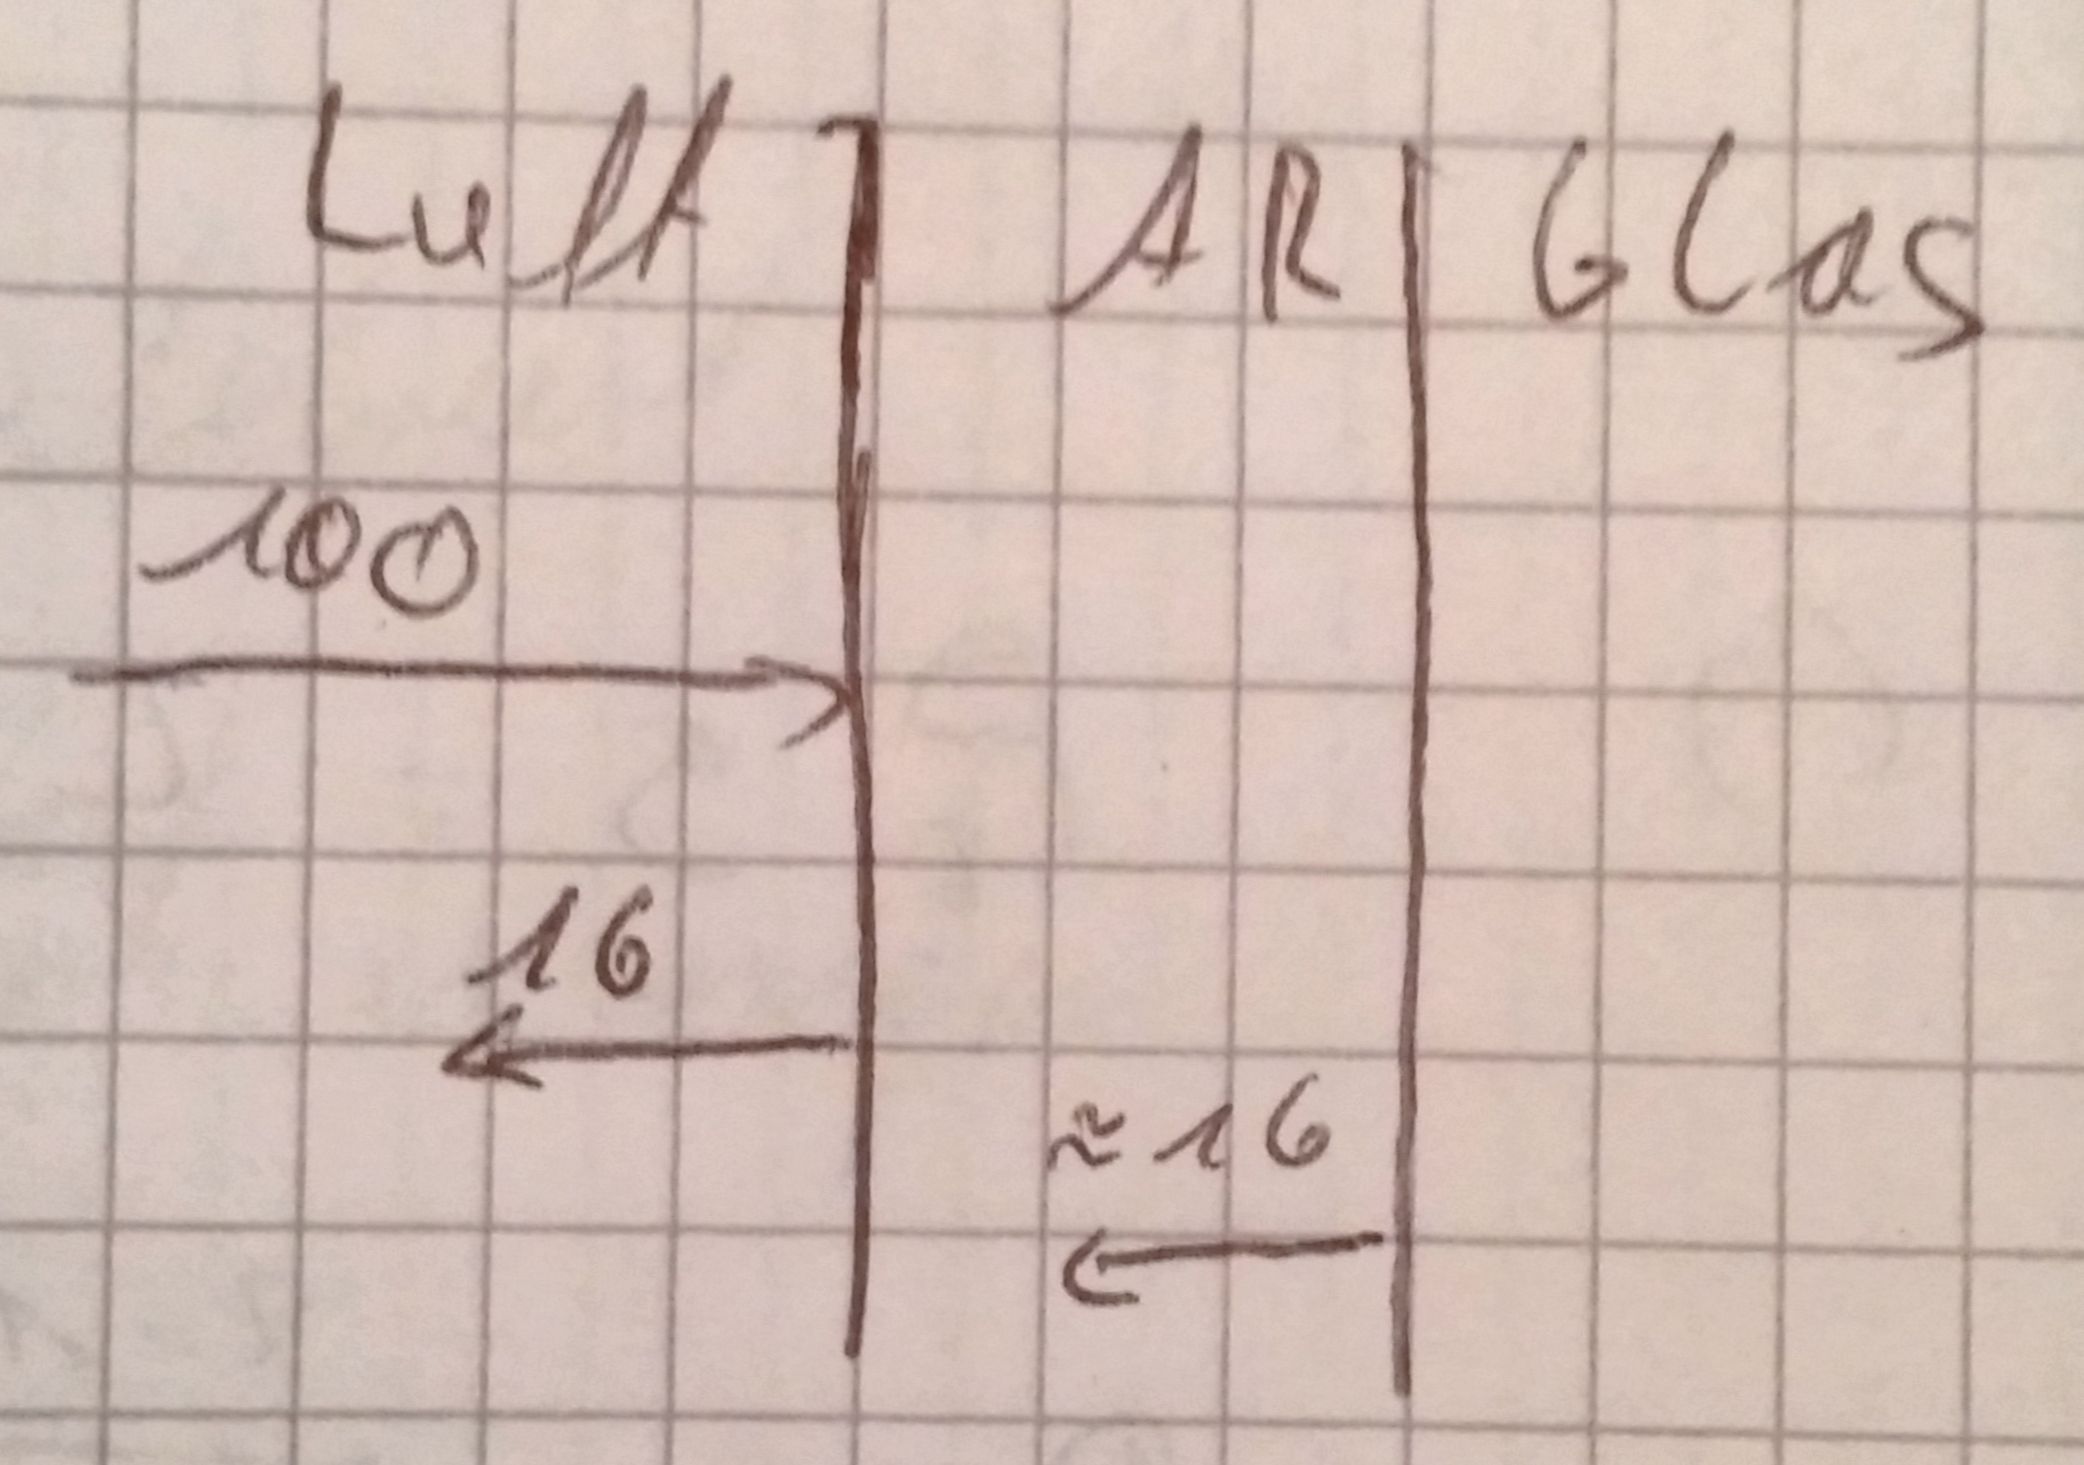 Luft AR Glas
100
16
≈ 16